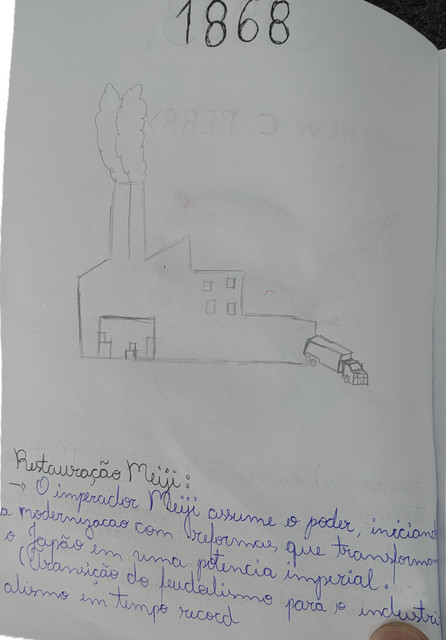 1868
MATTHEW C. PERRY
Restauração Meiji:
→ O imperador Meiji assume o poder, iniciand
a modernizacao com reformas, que transformam
o Japão em uma potencia imperial.
(Transição do feudalismo para o industri
alismo em tempo record